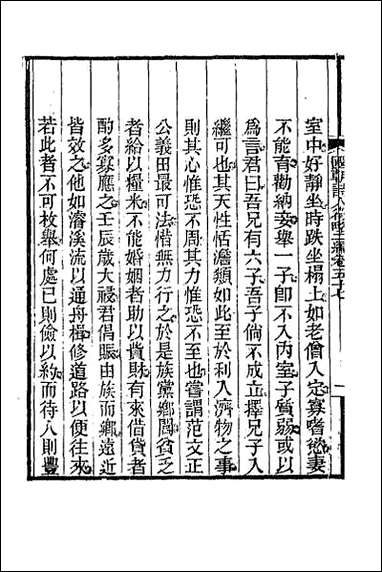 國朝詩人徵略二編卷五十七
室中好靜坐時趺坐榻上如老僧入定寡嗜慾妻
不能育勸納妾舉一子卽不入內室子質弱或以
爲言君曰吾兄有六子吾子倘不成立擇兄子入
繼可也其天性恬澹類如此至於利人濟物之事
則其心惟恐不周其力惟恐不至也嘗謂范文正
公義田最可法惜無力行之於是族黨鄉閭貧乏
者給以糧米不能婚姻者助以貲財有來借貸者
酌多寡應之壬辰歲大祲君倡賑由族而鄉遠近
皆效之他如濬溪流以通舟楫修道路以便往來
若此者不可枚舉何處已則儉以約而待人則豐